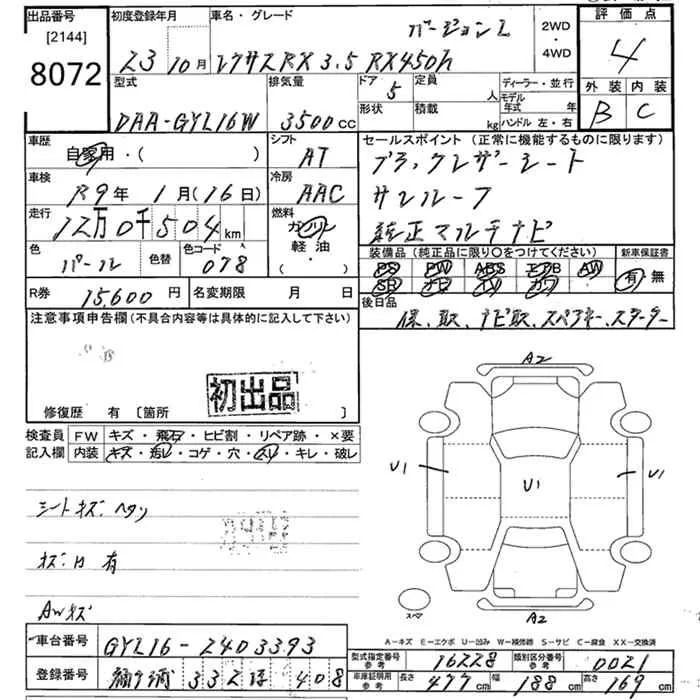 出品番号
[2144]
8072
初度登録年月
23 10月
車名・グレード
バージョンL
レクサスRX 3.5 RX450h
2WD
・
4WD
評価点
4
外装 内装
B C
型式
DAA-GYL16W
排気量
3500cc
ドア 5
形状
定員 人
積載 kg
ディーラー・並行
モデル年式 年
ハンドル 左・右
車歴
自家用・( )
シフト
AT
車検
R9年 1月(16日)
冷房
AAC
走行
12万0千504km
燃料
ガソリン
軽油
・
色
パール
色替
色コード
078
R券 15,600円
名変期限 月 日
セールスポイント(正常に機能するものに限ります)
ブラックレザーシート
サンルーフ
純正マルチナビ
装備品(純正品に限り○をつけてください)
PS PW ABS エアB AW
SR ナビ TV カワ
新車保証書
有・無
後日品
保、取、ナビ取、スペアキー、スターター
注意事項申告欄(不具合内容等は具体的に記入して下さい)
初出品
修復歴 有 [箇所 ]
検査員記入欄
FW キズ・飛石・ヒビ割・リペア跡・×要
内装 キズ・汚レ・コゲ・穴・スレ・キレ・破レ
シートキズ ヘタリ
有
AWキズ
A2
U1
U1
U1
A2
スペア
A-キズ E-エクボ U-凹み W-補修跡 S-サビ C-腐食 XX-交換済
車台番号 GYL16-2403393
登録番号 332 408
型式指定番号 参考 16228
類別区分番号 参考 0021
車庫証明用 参考 長さ 477cm 幅 188cm 高さ 169cm